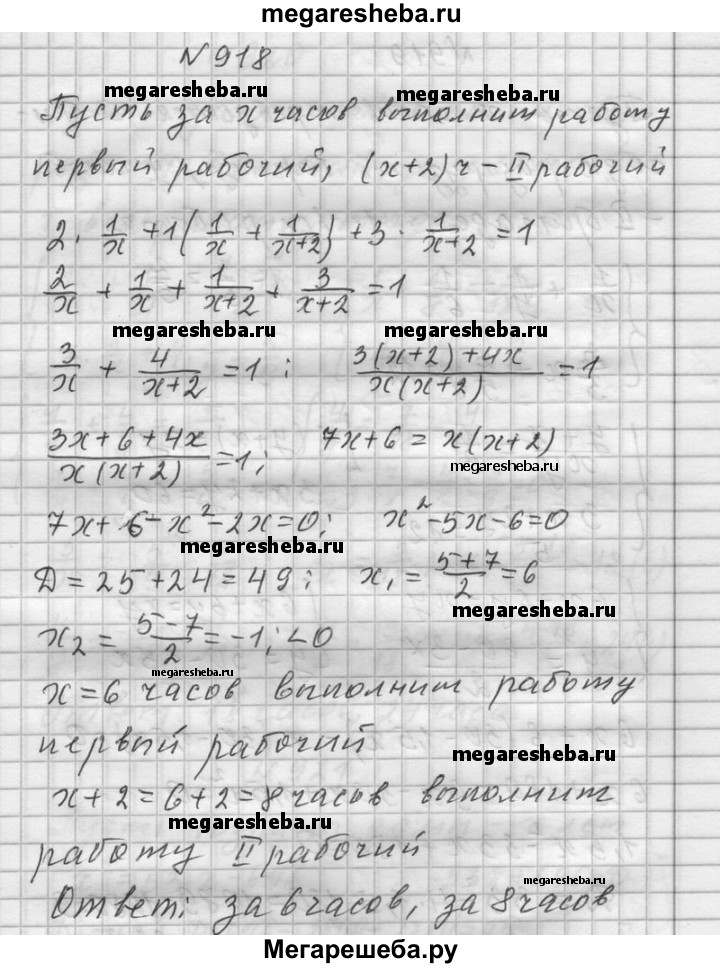 megaresheba.ru
N 918
megaresheba.ru megaresheba.ru
Пусть за x часов выполнит работу
первый рабочий, (x+2) ч – II рабочий
2 · 1/x + 1(1/x + 1/(x+2)) + 3 · 1/(x+2) = 1
2/x + 1/x + 1/(x+2) + 3/(x+2) = 1
megaresheba.ru megaresheba.ru
3/x + 4/(x+2) = 1 ; (3(x+2)+4x)/(x(x+2)) = 1
(3x+6+4x)/(x(x+2)) = 1; 7x+6 = x(x+2)
megaresheba.ru
7x+6-x²-2x=0; x²-5x-6=0
megaresheba.ru
Д = 25+24=49; x₁ = (5+7)/2 = 6
megaresheba.ru
x₂ = (5-7)/2 = -1; <0
megaresheba.ru
x=6 часов выполнит работу
первый рабочий
megaresheba.ru
x+2=6+2=8 часов выполнит
megaresheba.ru
работу II рабочий
megaresheba.ru
Ответ: за 6 часов, за 8 часов
Мегарешеба.ру